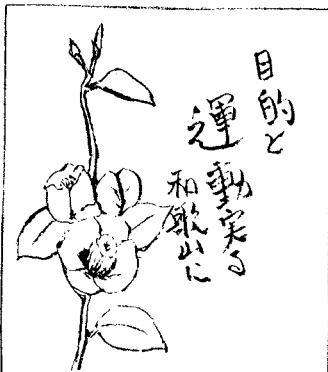 目的と
運動実る
和歌山に